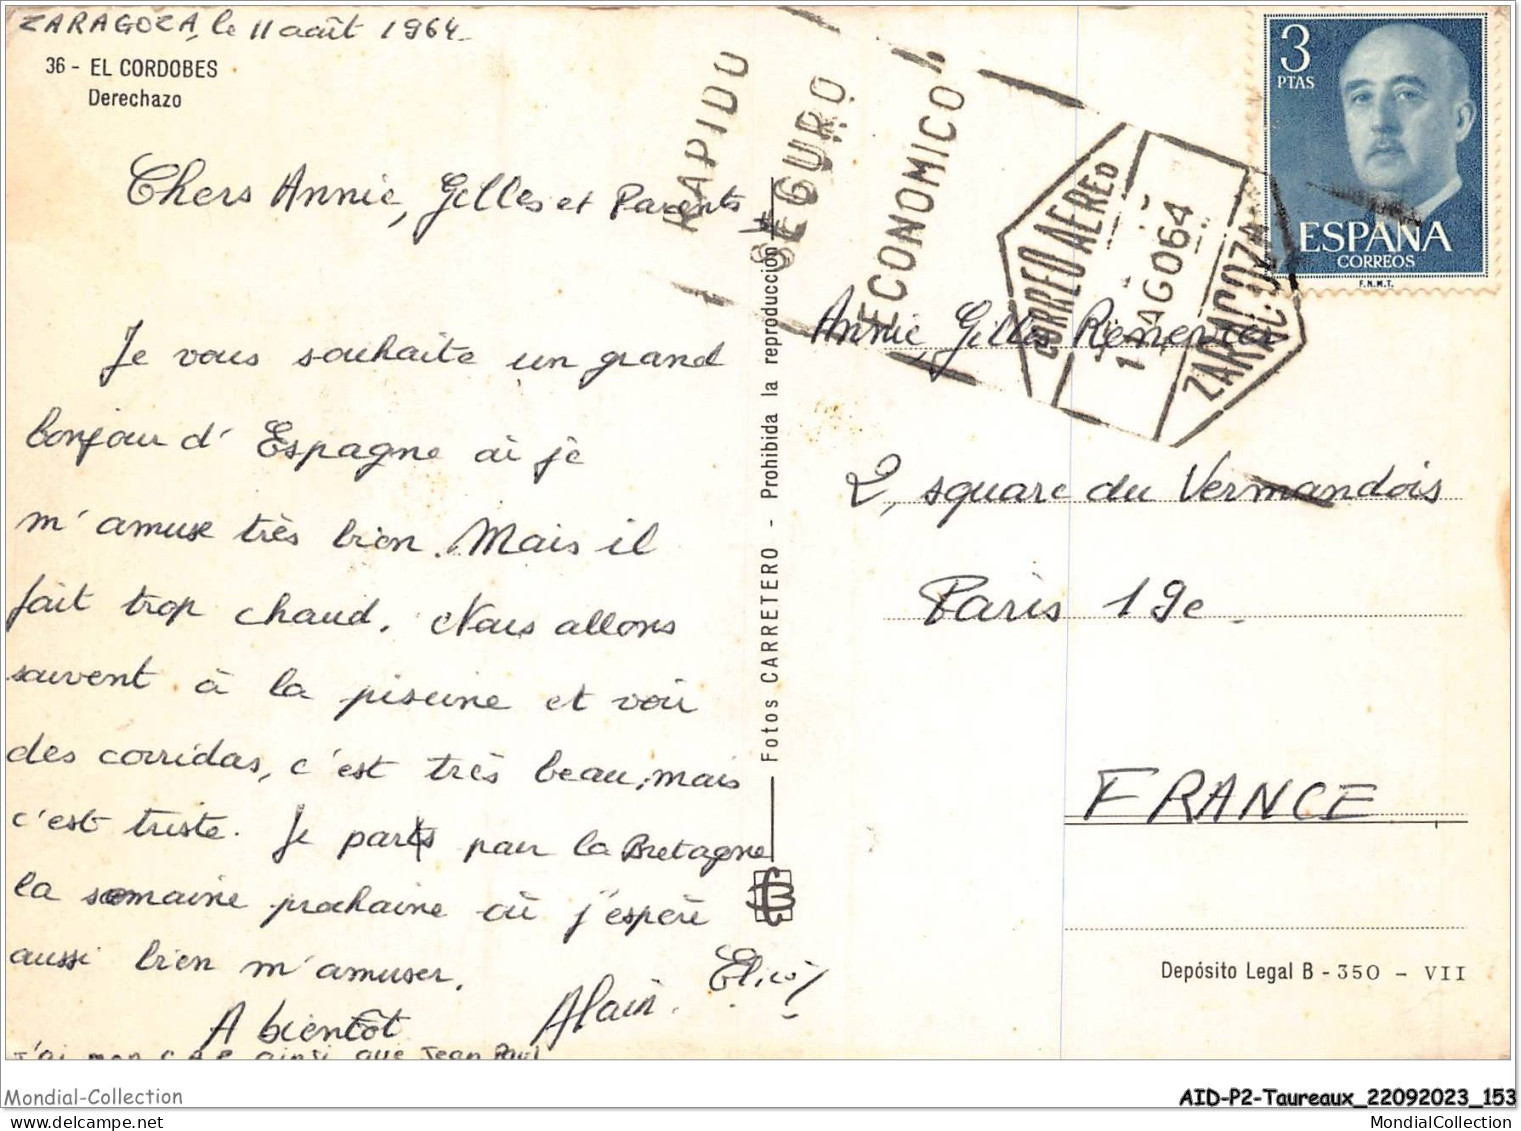 ZARAGOZA, le 11 août 1964
36 - EL CORDOBES
Derechazo
Chers Annie, Gilles et Parents
Je vous souhaite un grand
bonjour d'Espagne où je
m'amuse très bien. Mais il
fait trop chaud. Nous allons
souvent à la piscine et voir
des corridas, c'est très beau, mais
c'est triste. Je parts pour la Bretagne
la semaine prochaine où j'espère
aussi bien m'amuser.
A bientôt Alain.
J'ai mon C.A.P. ainsi que Jean Paul
Fotos CARRETERO - Prohibida la reproducción
RAPIDO
SEGURO
ECONOMICO
CORREO AEREO
AGO64
ZARAGOZA
3
PTAS
ESPAÑA
CORREOS
F.N.M.T.
Annie, Gilles
2, square du Vermandois
Paris 19e
FRANCE
Depósito Legal B - 350 - VII
Mondial-Collection
AID-P2-Taureaux_22092023_153
MondialCollection